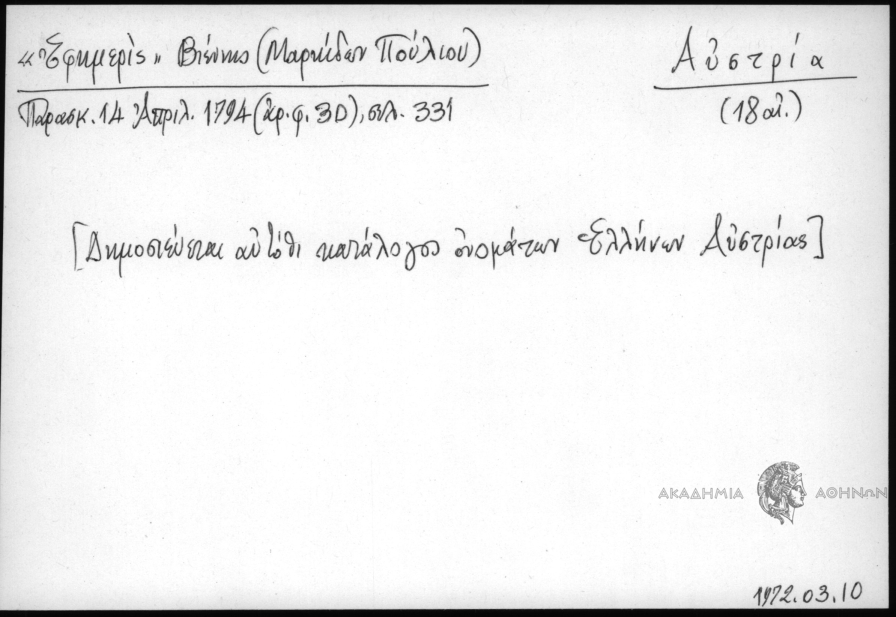 «Ἐφημερὶς» Βιέννης (Μαρκίδων Πούλιου)
Αὐστρία
Παρασκ. 14 Ἀπριλ. 1794 (ἀρ. φ. 30), σελ. 331
(18 αἰ.)
[Δημοσιεύεται αὐτόθι κατάλογος ὀνομάτων Ἑλλήνων Αὐστρίας]
ΑΚΑΔΗΜΙΑ ΑΘΗΝΩΝ
1972.03.10